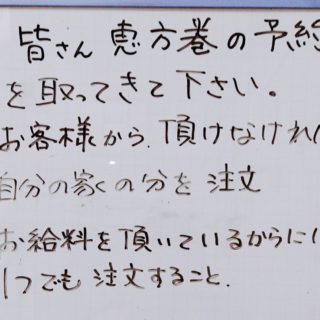 皆さん 恵方巻の予約
を取ってきて下さい。
お客様から、頂けなけれ
自分の家くの分を注文
お給料を頂いているからに
1つでも注文すること.